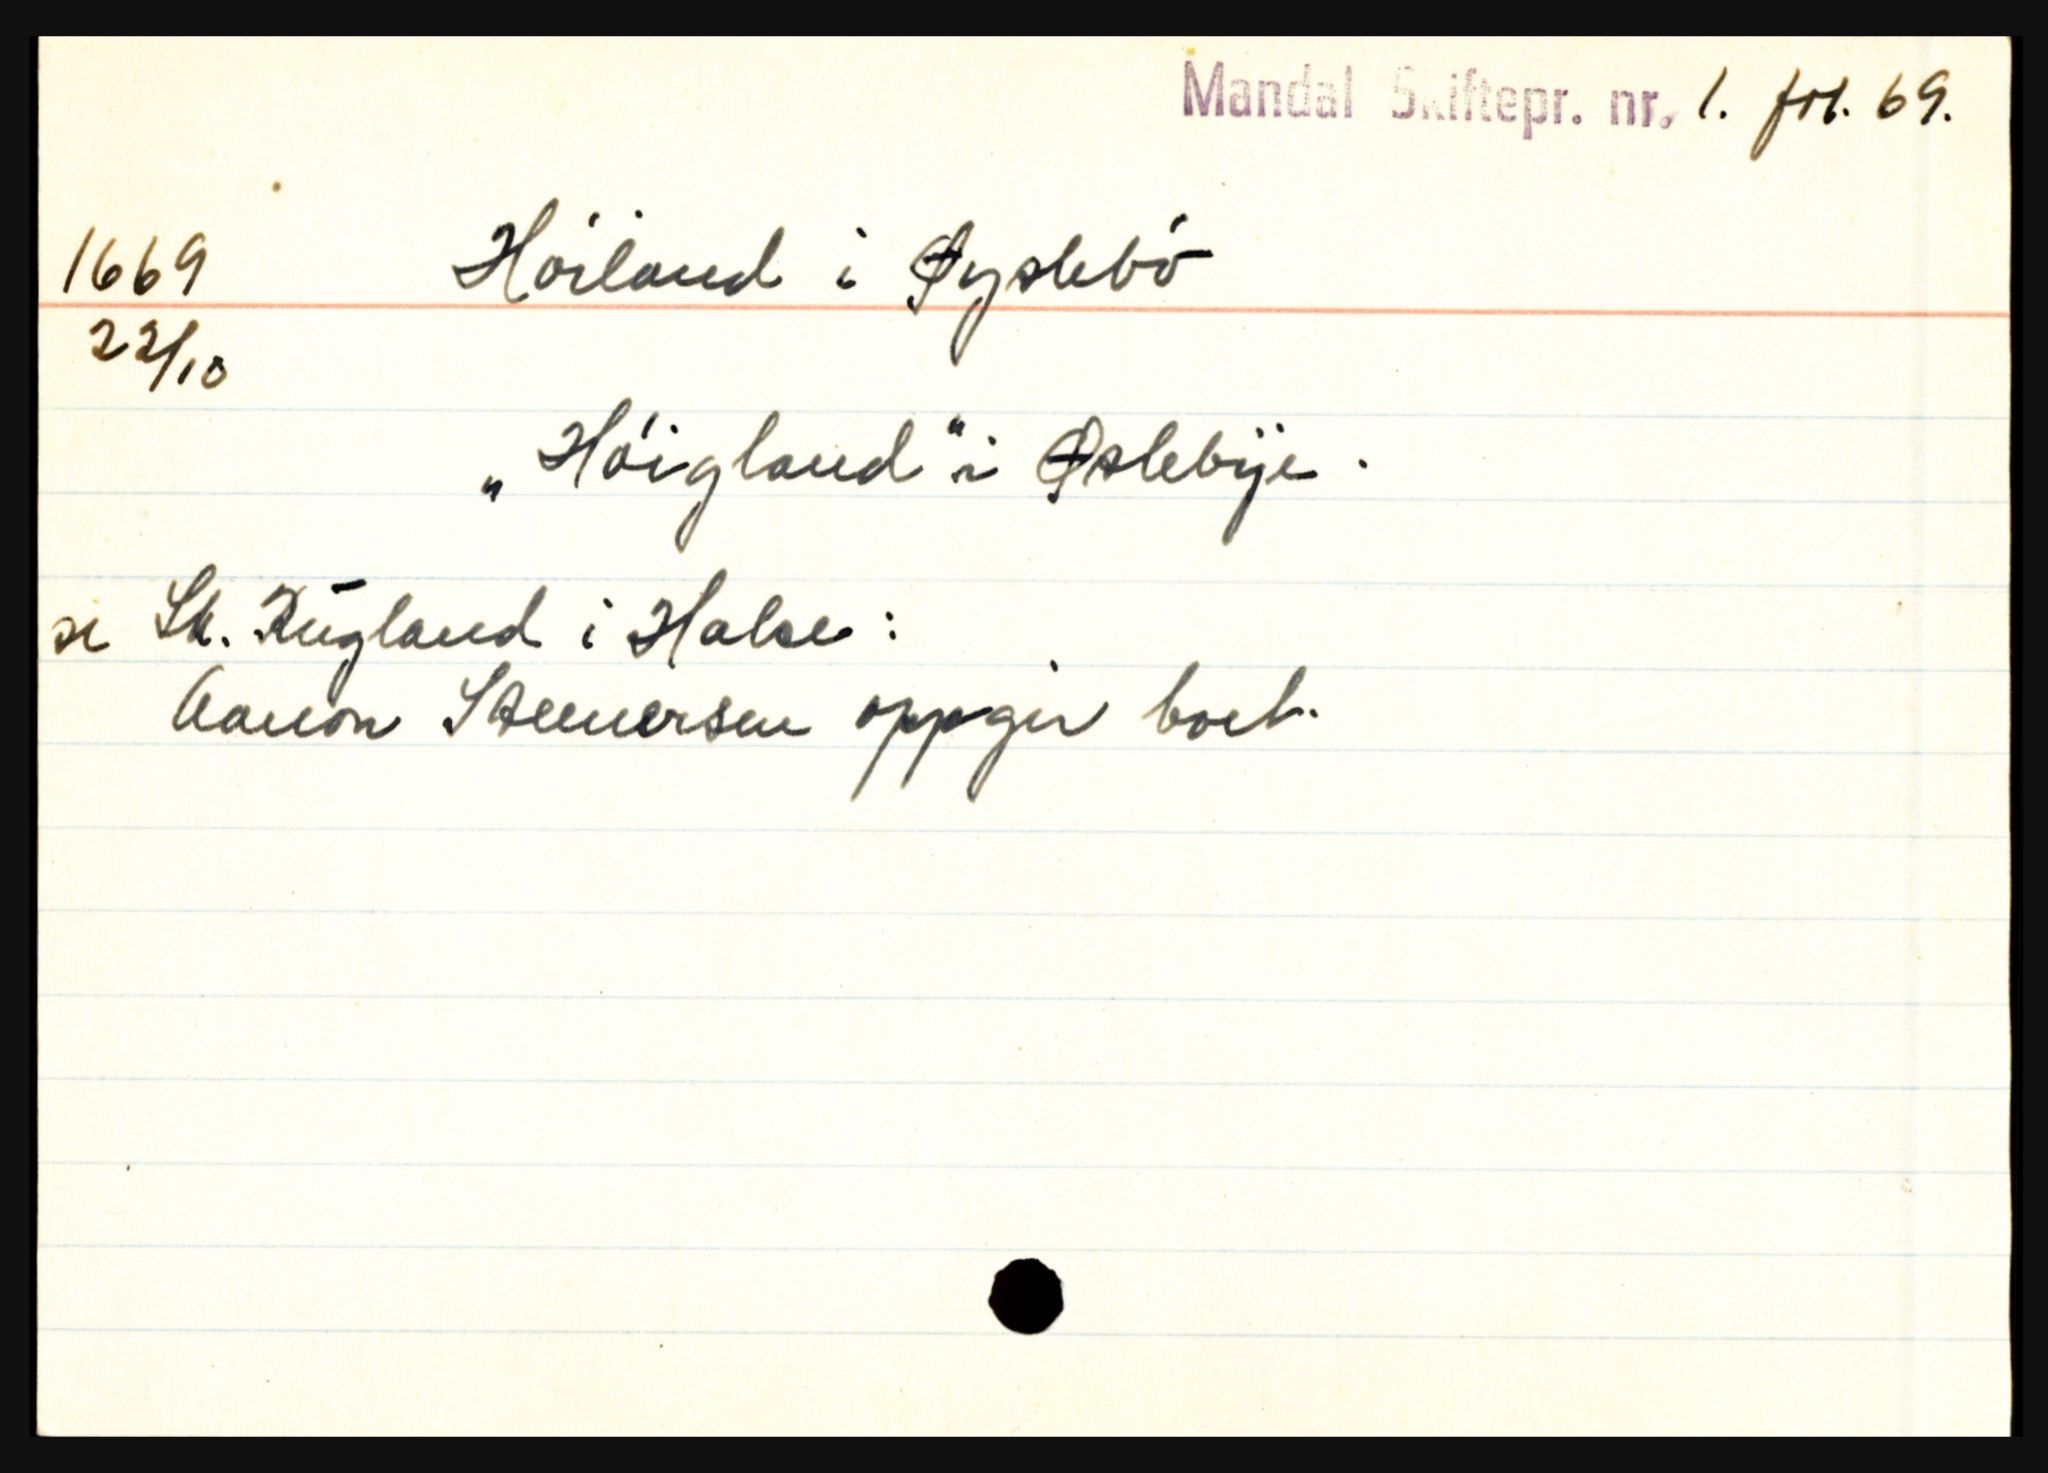 Mandal Skiftepr. nr. 1. fol. 69.
1669 Höiland i Øyslebö
22/10
„Höigland" i Øslebye.
se Sk. Kugland i Halse:
Aanon Steenersen oppgir boet.